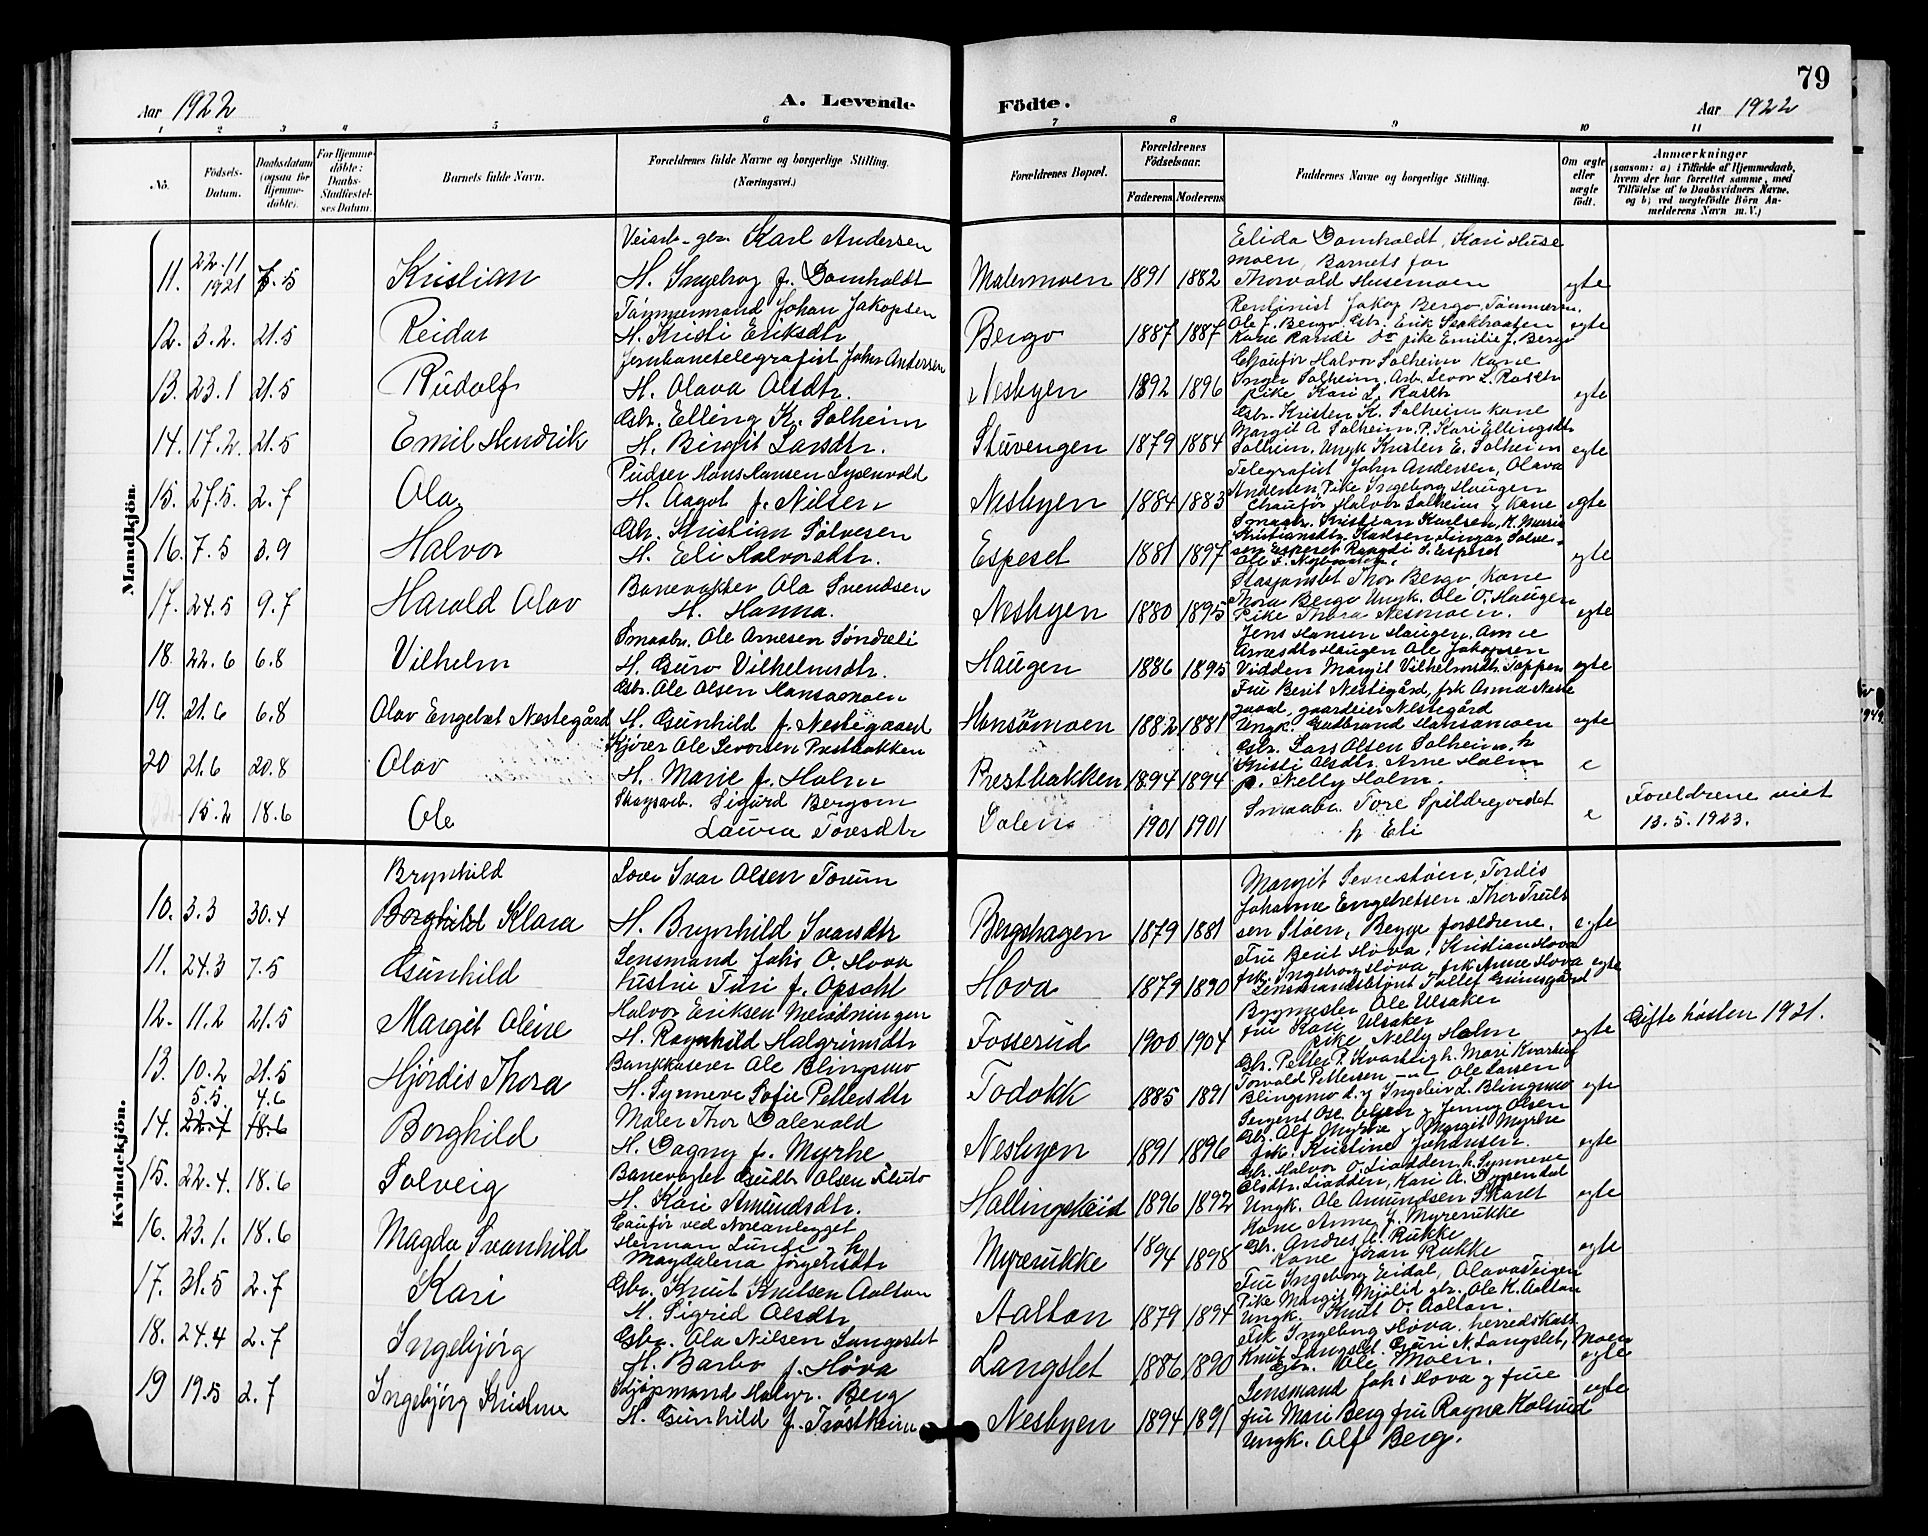 79
Aar 1922
A. Levende
Födte.
Aar 1922
1 2 3 4 5 6 7 8 9 10 11
No.
Födsels-Datum.
Daabsdatum (ogsaa for Hjemme-döbte).
For Hjemme-döbte: Daabs-Stadfæstel-ses Datum.
Barnets fulde Navn.
Forældrenes fulde Navne og borgerlige Stilling.
(Næringsvei.)
Forældrenes Bopæl.
Forældrenes Födselsaar.
Faderens Moderens
Faddernes Navne og borgerlige Stilling.
Om ægte eller uægte födt.
Anmærkninger
(saasom: a) i Tilfælde af Hjemmedaab, hvem der har forrettet samme, med Tilföielse af to Daabsvidners Navne, og b) ved uægtefödte Börn An-melderens Navn m. V.)
Mandkjön.
11. 22.11 1921 7.5 Kristian
Veiarb. Karl Andersen
H. Ingebog f. Domholdt
Malermoen 1891 1882
Elida Domholdt, Kari Huse
moen, Barnets far
Thorvald Husemoen
egte
12. 3.2. 21.5 Reidar
Tømmermand Johan Jakopsen
H. Kristi Eriksdtr
Bergo 1887 1887
Rentinist Jakop Bergo, Tømmerm.
Ole J. Bergo, Gbr. Erik
Kone Randi pike Emilie J. Bergo
egte
13. 23.1 21.5 Rudolf
Jernbanetelegrafist John Andersen
H. Olava Olsdtr.
Nesbyen 1892 1896
Chaufør Halvor Solheim Kone
Inger Solheim, Arb. Sevor L.
Pike Kari L.
egte
14. 17.2. 21.5 Emil Hendrik
Gbr. Elling K. Solheim
H. Birgit Larsdtr.
Stuvengen 1879 1884
Gbr. Kristen K. Solheim kone
Margit A Solheim. P. Kari Ellingsdtr
Solheim. Ungk Kristen E. Solheim
egte
15. 27.5. 2.7 Ola
Pudser Hans Hansen
H. Aagot f. Nilsen
Nesbyen 1884 1883
Telegrafist John Andersen, Olava
Andersen, Pike Ingeborg Haugen
Chaufør Halvor Solheim g Kone
egte
16. 7.5 3.9 Halvor
Gbr. Kristian Sølvesen
H. Eli Halvorsdtr.
Espeset 1881 1897
Smaabr. Kristian Karlsen, K. Maria
Kristiansdtr. Karlsen, Sølve-
sen Espeset S. Espeset
egte
17. 24.5 9.7 Harald Olav
Banevakter Ola Svendsen
H. Hanna.
Nesbyen 1880 1895
Stasjonsbet Thor Bergo, Kone
Thora Bergo Ungk. Ole O. Haugen
Pike Thora Nesmoen.
egte
18 22.6 6.8 Vilhelm
Smaabr. Ole Arnesen Søndreli
H. Guro Vilhelmsdtr.
Haugen 1886 1895
Jens Hansen Haugen, Arne
Haugen Ole Jakopsen
Vidden Margit Vilhelmsdtr. Toppen
egte
19. 21.6 6.8 Olav Engebret Nestegård
Gbr. Ole Olsen Hansamoen
H. Gunhild f. Nestegaard
Hansamoen 1882 1881
Fru Berit Nestegård, frk Anna Neste
gaard, gaardeier Nestegård
Ungk. Gudbrand Hansamoen
egte
20 21.6 20.8 Olav
Kjører Ole Sevorsen Prestbakken
H. Marie f. Holm
Prestbakken 1894 1894
Gbr. Lars Olsen Solheim, h
Kristi Olsdtr. Arne Holm
p. Nelly Holm.
e
15.2 18.6 Ole
Skogsarb. Sigurd Bergsm
Laura Toresdtr
Dalen 1901 1901
Smaabr. Tore Spildrejordet
h Eli
e
Foreldrene viet
13.5.1923.
Kvindekjön.
Brynhild
10. 3.3 30.4 Borghild Klara
Ivar Olsen Torum
H. Brynhild Ivarsdtr
Bergshagen 1879 1881
Margit Tordis
Johanne Engebretsen. Thor Truls
sen Støen, Begge foreldrene.
egte
11. 24.3 7.5 Gunhild
Lensmand Johs O. Hova
hustru Turi f. Opsahl
Hova 1879 1890
Fru Berit Høva, Kristian Hova
frk. Ingeborg Høva, frk Anne Hova
Lensmandsbtjnt Tollef Grimsgård
egte
12. 11.2 21.5 Margit Oline
Halvor Eriksen
H. Ragnhild Halgrimsdtr
Fosserud 1900 1904
Bygmester Ole Ulsaker
fru Kari Ulsaker
pike Nelly Holm
egte
Gifte høsten 1921.
13. 10.2 21.5 Hjördis Thora
Bankkaserer Ole Blingsmo
H. Synneve Sofie Pettersdtr
Todokk 1885 1891
Gbr. Petter P. Kvarstig h. Mari
Torvald Pettersen Ole Larsen
Blingsmo h. g Ingeleiv L. Blingsmo
egte
5.5. 4.6
14. 22.4 18.6 Borghild
Maler Thor Dalevold
H. Dagny f. Myrhe
Nesbyen 1891 1896
Sergent Ole Olsen g Jenny Olsen
Gbr. Alf Myrhe g Margit Myrhe
frk. Kristine Johansen.
egte
15. 22.4. 18.6 Solveig
Banevogter Gudbr. Olsen
H. Kari Amundsdtr.
Hallingskeid 1896 1892
Gbr. Halvor O. Liodden h. Synneve
Olsdtr. Liodden, Kari A.
Ungk. Ole Amundsen Skaret
egte
16. 23.1. 18.6 Magda Svanhild
Caufør ved Noreanlegget
Herman Lunde, h
Magdalena Jørgensdtr
Myrerukke 1894 1898
Kone Anne J. Myrerukke
Gbr. Andres A. Rukke
Kone Jøran Rukke
egte
17. 31.5 2.7 Kari
Gbr. Knut Knutsen Aalton
H. Sigrid Olsdtr
Aalton 1879 1894
Fru Ingeborg Eidal, Olava
Pike Margit Mjølid gbr. Ole K. Aalton
Ungk. Knut O. Aalton.
18. 24.4 2.7 Ingebjörg
Gbr. Ola Nilsen Langeslet
H. Barbo f. Høva
Langslet 1886 1890
Frk Ingeborg Høva, herredskas.
Knut Langslet. Guri N. Langslet, Moen
Gbr. Ole Moen.
egte
19 19.5 2.7 Ingebjörg Kristine
Kjøpmand Halvr. Berg
H. Gunhild f. Trøstheim
Nesbyen 1894 1891
Lensmand Joh: Hova g frue
fru Mari Berg fru Ragna Kolsrud
Ungk. Alf Berg.
egte